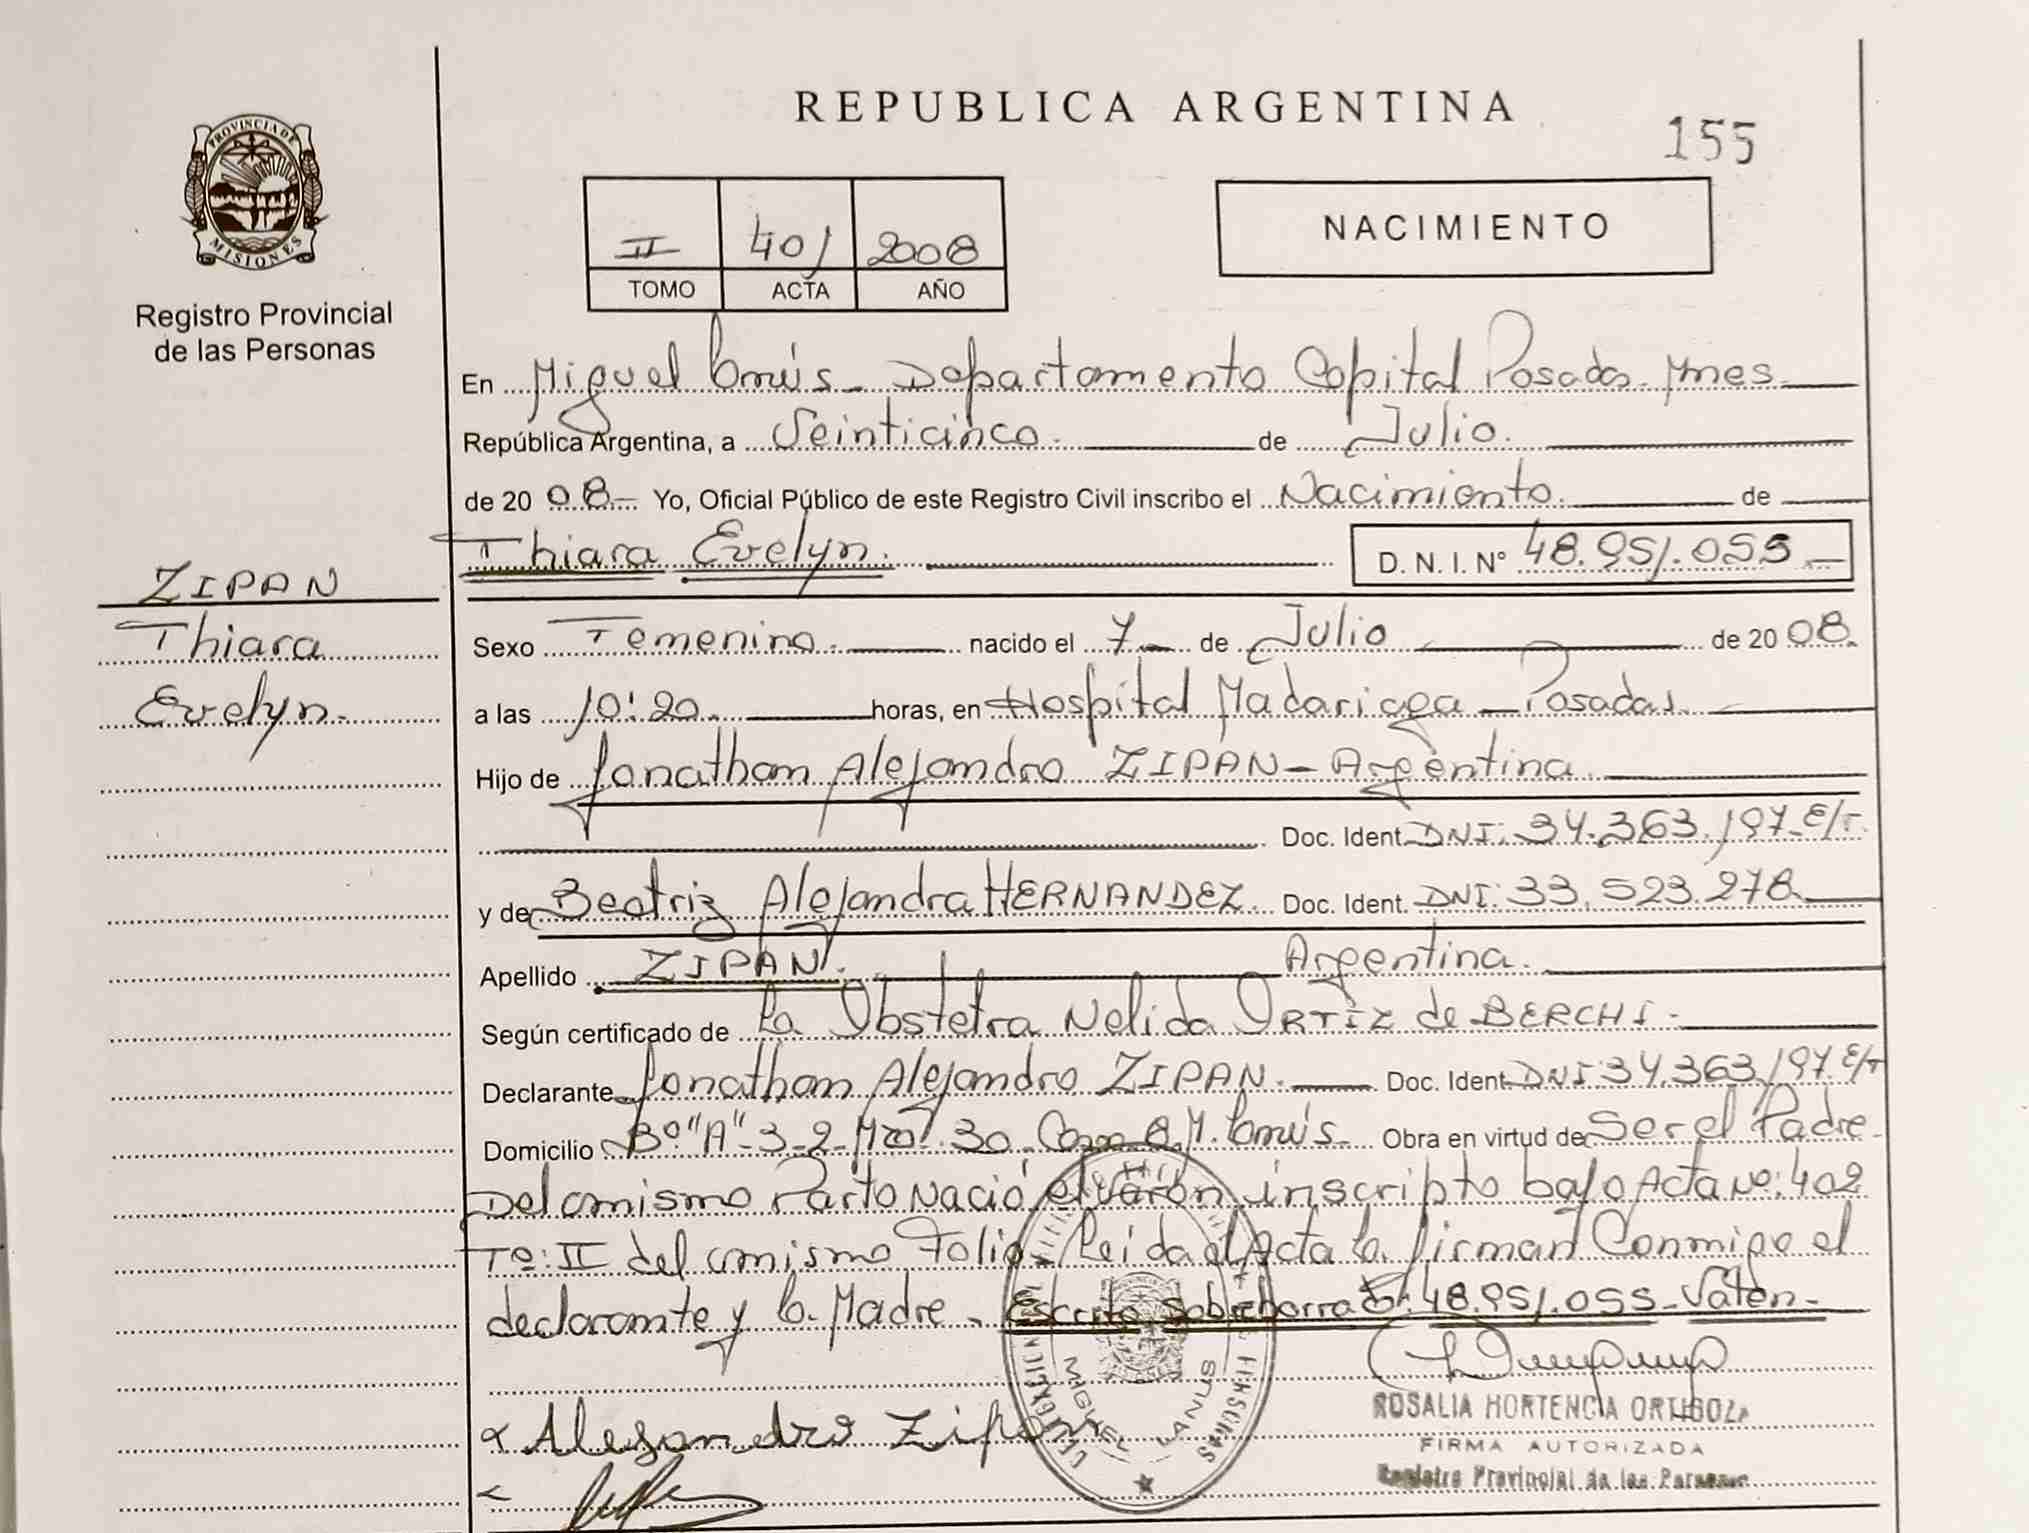 REPUBLICA ARGENTINA
155
PROVINCIA DE
MISIONES
Registro Provincial
de las Personas
II 401 2008
TOMO ACTA AÑO
NACIMIENTO
En Miguel Lanús - Departamento Capital Posadas - Mnes
República Argentina, a Veinticinco de Julio
de 2008 - Yo, Oficial Público de este Registro Civil inscribo el Nacimiento de
Thiara Evelyn. D. N. I. Nº 48.951.055 -
ZIPAN
Thiara
Evelyn -
Sexo Femenino nacido el 7 de Julio de 2008.
a las 10:20 horas, en Hospital Madariaga - Posadas
Hijo de Jonathan Alejandro ZIPAN - Argentina
Doc. Ident. DNI: 34.363.197 E/T.
y de Beatriz Alejandra HERNANDEZ. Doc. Ident. DNI: 33.523.278
Apellido ZIPAN. Argentina.
Según certificado de La Obstetra Nelida ORTIZ de BERCHI -
Declarante Jonathan Alejandro ZIPAN. Doc. Ident. DNI 34.363.197 E/T
Domicilio Bº "A"-3-2-Mzo 30 Casa 8 M. Lanús Obra en virtud de Ser el Padre
Del mismo Parto Nació el Varón inscripto bajo Acta Nº: 402
Tº: II del mismo Folio. Leida el Acta la firman Conmigo el
declarante y la Madre - Escrito sobreborrado: 48.951.055 - Valen -
MIGUEL LANUS
ROSALIA HORTENCIA ORTIGOZA
FIRMA AUTORIZADA
Registro Provincial de las Personas
Alejandro Zipan